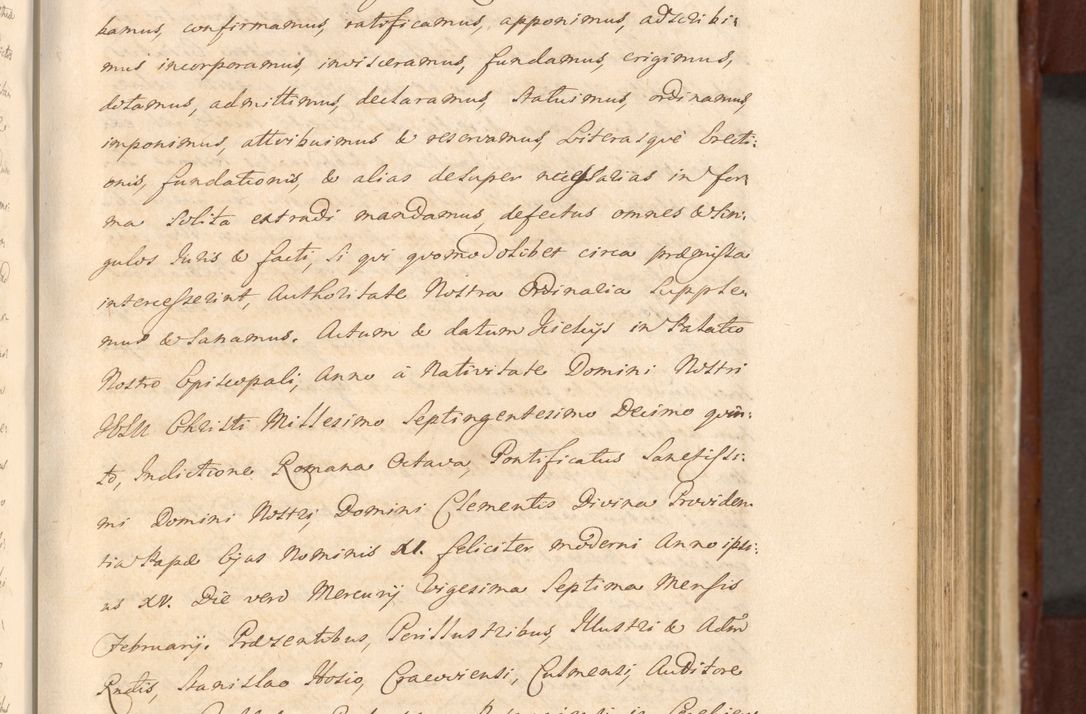 bamus, confirmamus, ratificamus, apponimus, adscribi:
mus incorporamus, invisceramus, fundamus, erigimus,
dotamus, admittimus, declaramus, statuimus, ordinamus,
imponimus, attribuimus & reservamus, Literasque Erecti:
onis, fundationis, & alias desuper necessarias in for:
ma solita extradi mandamus, defectus omnes & sin:
gulos Juris & facti, si qui quomodolibet circa præmissa
intercesserint, Authoritate Nostra Ordinaria Supple:
mus & Sanamus. Actum & datum Kielcijs in Palatio
Nostro Episcopali, Anno à Nativitate Domini Nostri
JESU Christi Millesimo Septingentesimo Decimo quin:
to, Indictione Romana Octava, Pontificatus Sanctissi:
mi Domini Nostri, Domini Clementis Divina Providen:
tia Papæ Ejus Nominis XI. feliciter moderni Anno ipsi:
us XV. Die vero Mercurij Vigesima Septima Mensis
Februarij. Præsentibus, Perillustribus, Illustri & Adm̃
Rndis, Stanislao Hosio, Cracoviensi, Culmensi, Auditore